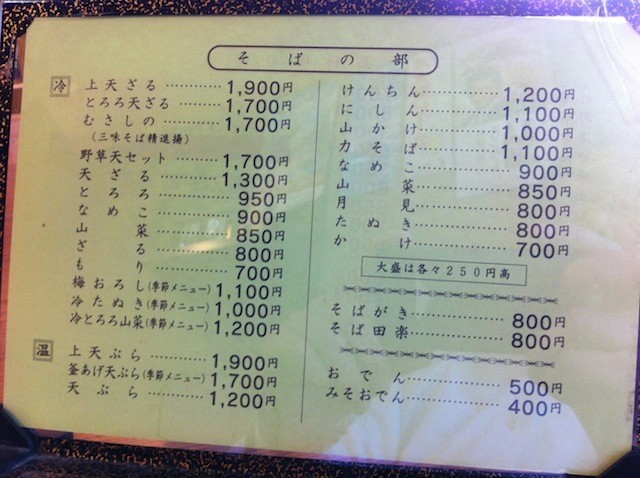 そばの部
冷
上天ざる………… 1,900円
とろろ天ざる………… 1,700円
むさしの………… 1,700円
(三味そば精進揚)
野草天セット………… 1,700円
天ざる………… 1,300円
とろろ………… 950円
なめこ………… 900円
山菜………… 850円
ざる………… 800円
もり………… 700円
梅おろし(季節メニュー) 1,100円
冷たぬき(季節メニュー) 1,000円
冷とろろ山菜(季節メニュー) 1,200円
温
上天ぷら………… 1,900円
釜あげ天ぷら(季節メニュー) 1,700円
天ぷら………… 1,200円
けんちん………… 1,200円
にしん………… 1,100円
山かけ………… 1,000円
力そば………… 1,100円
なめこ………… 900円
山菜………… 850円
月見………… 800円
たぬき………… 800円
かけ………… 700円
大盛は各々250円高
そばがき………… 800円
そば田楽………… 800円
おでん………… 500円
みそおでん………… 400円